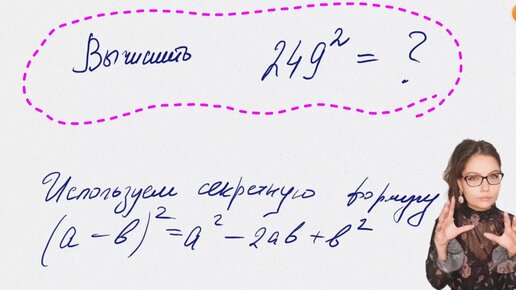 Вычислить 249² = ?
Используем секретную формулу
(a - b)² = a² - 2ab + b²